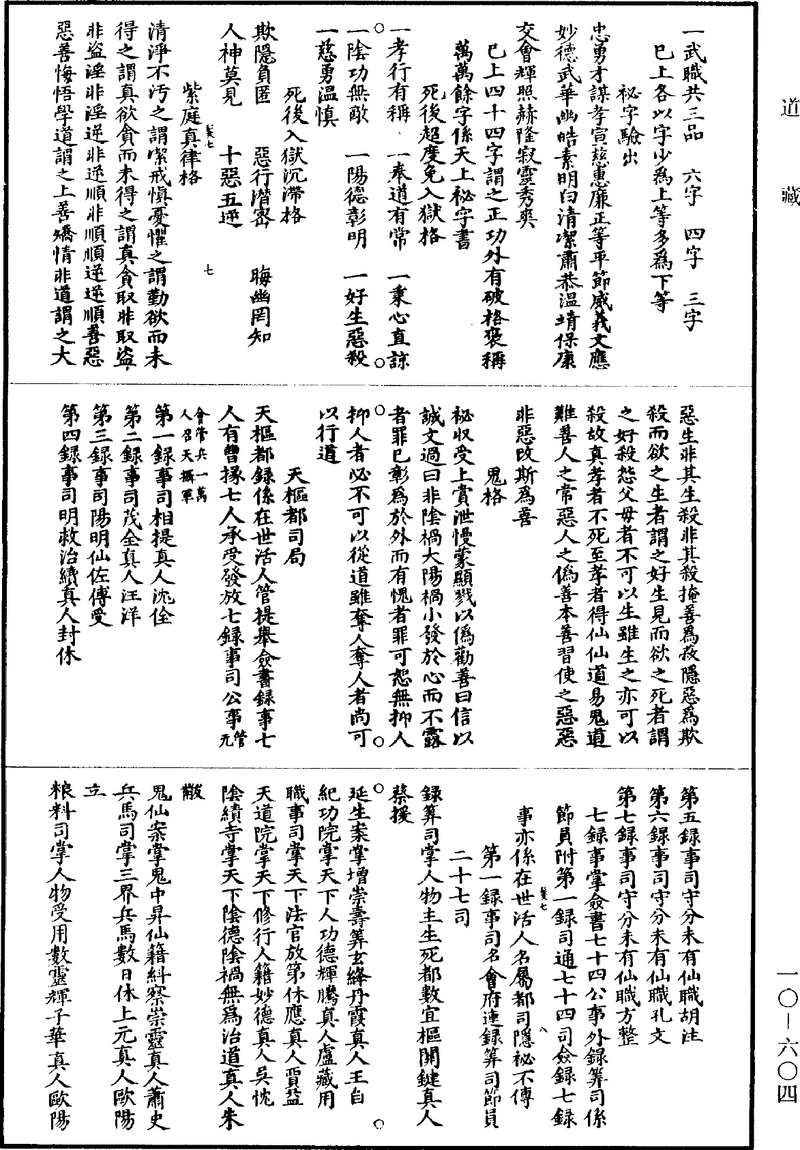 道藏
一武職共三品　六字　四字　三字
已上各以字少為上等多為下等
秘字驗出
忠勇才謀孝宣慈惠廉正等平節威義文應
妙德武華幽皓素明白清潔肅恭溫靖保康
交會輝照赫隆寂靈秀爽
已上四十四字謂之正功外有破格褒稱
萬萬餘字係天上秘字書
死後超度免入獄格
一孝行有稱　一奉道有常　一秉心直諒
一陰功無敵　一陽德彰明　一好生惡殺
一慈勇溫慎
死後入獄沉滯格
欺隱負匿　惡行潛密　晦幽罔知
人神莫見　十惡五逆
紫庭真律格
七
清淨不污之謂潔戒慎憂懼之謂勤欲而未
得之謂真欲貪而未得之謂真貪取非取盜
非盜淫非淫逆非逆順非順順逆逆順善惡
惡善悔悟學道謂之上善矯情非道謂之大
惡生非其生殺非其殺掩善為妖隱惡為欺
殺而欲之生者謂之好生見而欲之死者謂
之好殺怨父母者不可以生雖生之亦可以
殺故真孝者不死至孝者得仙仙道易鬼道
難善人之常惡人之偽善本善習使之惡惡
非惡改斯為善
鬼格
秘收受上賞泄慢蒙顯戮以偽勸善曰信以
誠文過曰非陰禍大陽禍小發於心而不露
者罪已彰為於外而有愧者罪可恕無抑人
抑人者必不可以從道雖奪人奪人者尚可
以行道
天樞都司局
天樞都錄係在世活人管提舉僉書錄事七
人有曹掾七人承受發放七錄事司公事管元
會管兵一萬
人召天樞軍
第一錄事司相提真人沈佺
第二錄事司茂全真人汪洋
第三錄事司陽明仙佐傅受
第四錄事司明救治續真人封休
第五錄事司守分未有仙職胡注
第六錄事司守分未有仙職孔文
第七錄事司守分未有仙職方整
七錄事掌僉書七十四公事外錄筭司係
節員附第一錄司通七十四司僉錄七錄
事亦係在世活人名屬都司隱秘不傳
八
第一錄事司名會府連錄筭司節員
二十七司
錄筭司掌人物主生死都數宜樞關鍵真人
蔡援
延生案掌增崇壽筭玄絳丹霞真人王自
紀功院掌天下人功德輝騰真人盧藏用
職事司掌天下法官放第休應真人賈益
天道院掌天下修行人籍妙德真人吳忱
陰績寺掌天下陰德陰禍無為治道真人朱
散
鬼仙案掌鬼中昇仙籍糾察崇靈真人蕭史
兵馬司掌三界兵馬數日休上元真人歐陽
立
粮料司掌人物受用數靈輝子華真人歐陽
一〇—六〇四